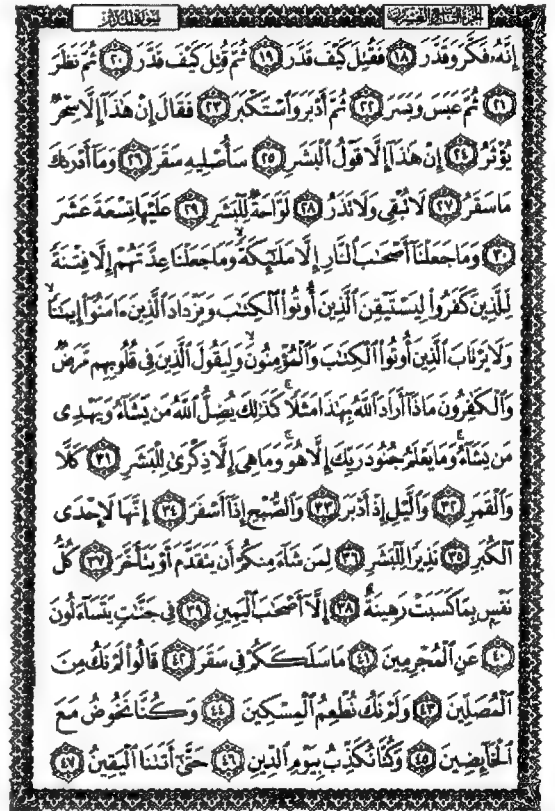 الجزء التاسع والعشرون
سورة المدثر
إِنَّهُۥ فَكَّرَ وَقَدَّرَ ﴿١٨﴾ فَقُتِلَ كَيْفَ قَدَّرَ ﴿١٩﴾ ثُمَّ قُتِلَ كَيْفَ قَدَّرَ ﴿٢٠﴾ ثُمَّ نَظَرَ
﴿٢١﴾ ثُمَّ عَبَسَ وَبَسَرَ ﴿٢٢﴾ ثُمَّ أَدْبَرَ وَٱسْتَكْبَرَ ﴿٢٣﴾ فَقَالَ إِنْ هَٰذَآ إِلَّا سِحْرٌ
يُؤْثَرُ ﴿٢٤﴾ إِنْ هَٰذَآ إِلَّا قَوْلُ ٱلْبَشَرِ ﴿٢٥﴾ سَأُصْلِيهِ سَقَرَ ﴿٢٦﴾ وَمَآ أَدْرَىٰكَ
مَا سَقَرُ ﴿٢٧﴾ لَا تُبْقِى وَلَا تَذَرُ ﴿٢٨﴾ لَوَّاحَةٌ لِّلْبَشَرِ ﴿٢٩﴾ عَلَيْهَا تِسْعَةَ عَشَرَ
﴿٣٠﴾ وَمَا جَعَلْنَآ أَصْحَٰبَ ٱلنَّارِ إِلَّا مَلَٰٓئِكَةً ۙ وَمَا جَعَلْنَا عِدَّتَهُمْ إِلَّا فِتْنَةً
لِّلَّذِينَ كَفَرُوا۟ لِيَسْتَيْقِنَ ٱلَّذِينَ أُوتُوا۟ ٱلْكِتَٰبَ وَيَزْدَادَ ٱلَّذِينَ ءَامَنُوٓا۟ إِيمَٰنًا ۙ
وَلَا يَرْتَابَ ٱلَّذِينَ أُوتُوا۟ ٱلْكِتَٰبَ وَٱلْمُؤْمِنُونَ ۙ وَلِيَقُولَ ٱلَّذِينَ فِى قُلُوبِهِم مَّرَضٌ
وَٱلْكَٰفِرُونَ مَاذَآ أَرَادَ ٱللَّهُ بِهَٰذَا مَثَلًا ۚ كَذَٰلِكَ يُضِلُّ ٱللَّهُ مَن يَشَآءُ وَيَهْدِى
مَن يَشَآءُ ۚ وَمَا يَعْلَمُ جُنُودَ رَبِّكَ إِلَّا هُوَ ۚ وَمَا هِىَ إِلَّا ذِكْرَىٰ لِلْبَشَرِ ﴿٣١﴾ كَلَّا
وَٱلْقَمَرِ ﴿٣٢﴾ وَٱلَّيْلِ إِذْ أَدْبَرَ ﴿٣٣﴾ وَٱلصُّبْحِ إِذَآ أَسْفَرَ ﴿٣٤﴾ إِنَّهَا لَإِحْدَى
ٱلْكُبَرِ ﴿٣٥﴾ نَذِيرًا لِّلْبَشَرِ ﴿٣٦﴾ لِمَن شَآءَ مِنكُمْ أَن يَتَقَدَّمَ أَوْ يَتَأَخَّرَ ﴿٣٧﴾ كُلُّ
نَفْسٍۭ بِمَا كَسَبَتْ رَهِينَةٌ ﴿٣٨﴾ إِلَّآ أَصْحَٰبَ ٱلْيَمِينِ ﴿٣٩﴾ فِى جَنَّٰتٍ يَتَسَآءَلُونَ
﴿٤٠﴾ عَنِ ٱلْمُجْرِمِينَ ﴿٤١﴾ مَا سَلَكَكُمْ فِى سَقَرَ ﴿٤٢﴾ قَالُوا۟ لَمْ نَكُ مِنَ
ٱلْمُصَلِّينَ ﴿٤٣﴾ وَلَمْ نَكُ نُطْعِمُ ٱلْمِسْكِينَ ﴿٤٤﴾ وَكُنَّا نَخُوضُ مَعَ
ٱلْخَآئِضِينَ ﴿٤٥﴾ وَكُنَّا نُكَذِّبُ بِيَوْمِ ٱلدِّينِ ﴿٤٦﴾ حَتَّىٰٓ أَتَىٰنَا ٱلْيَقِينُ ﴿٤٧﴾